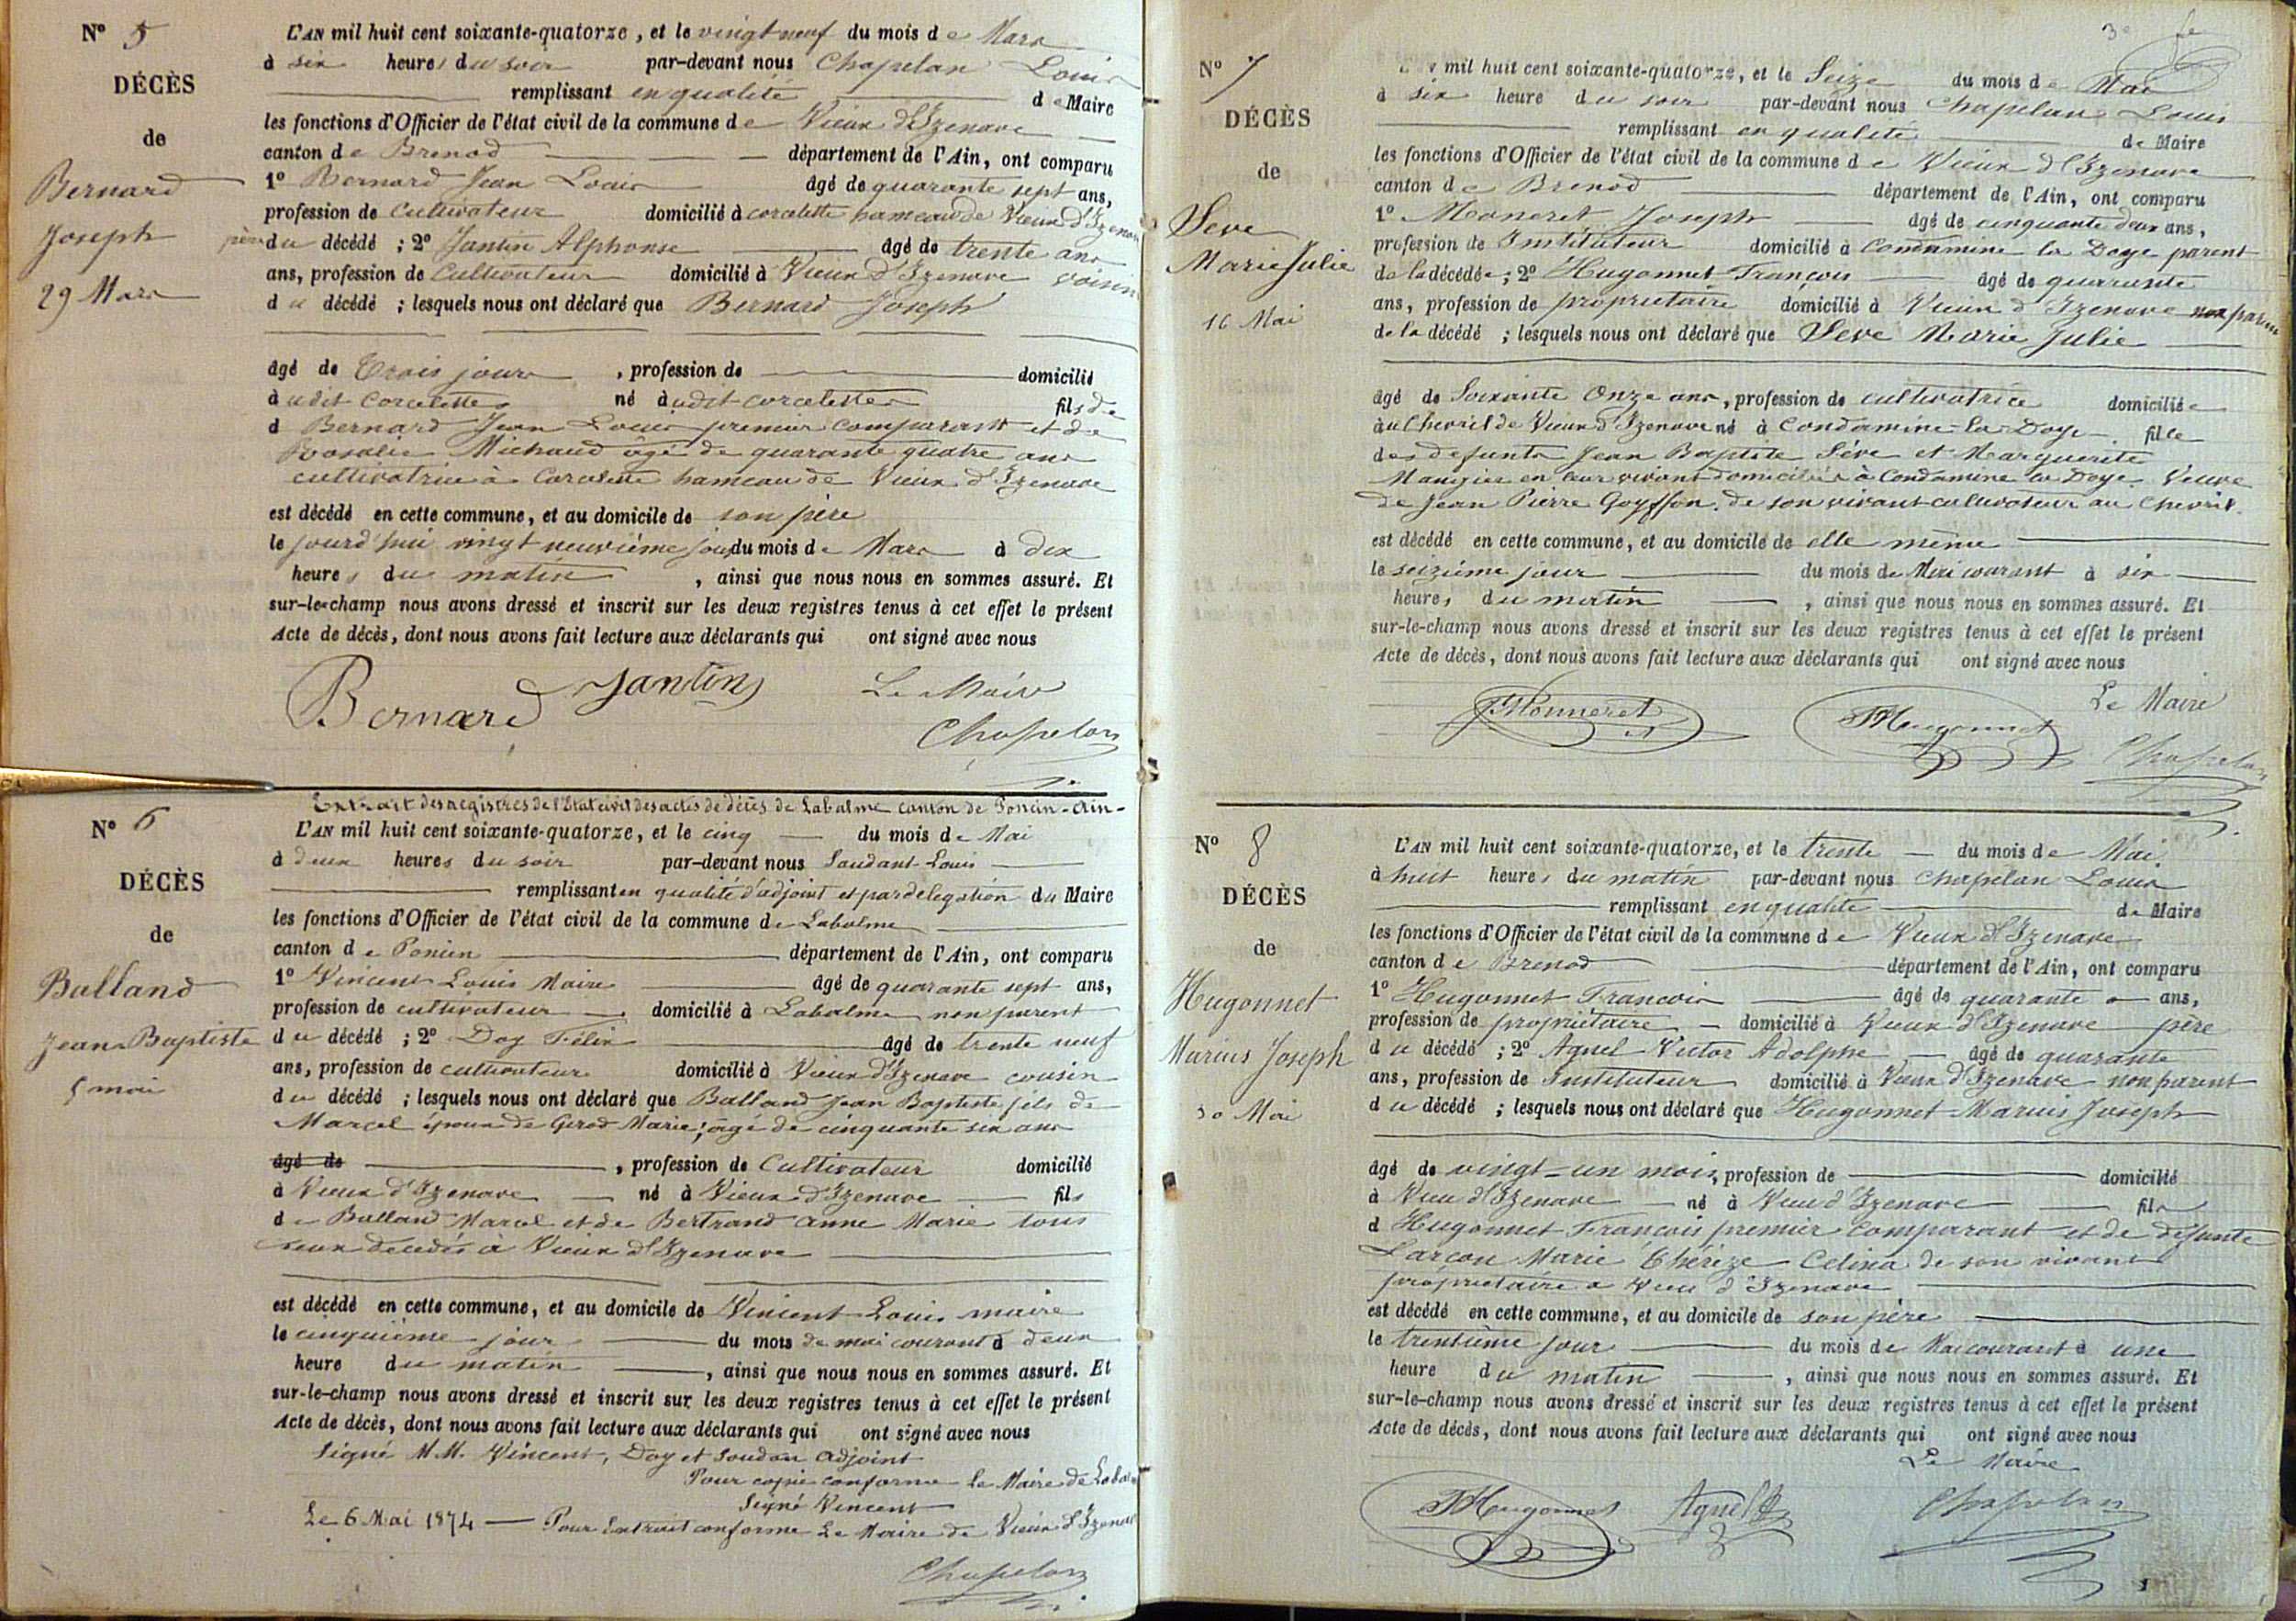 N° 5
DÉCÈS
de
Bernard
Joseph
29 Mars
L'AN mil huit cent soixante-quatorze, et le vingt neuf du mois de Mars
à six heures du soir par-devant nous Chapelan Louis
remplissant en qualité de Maire
les fonctions d'Officier de l'état civil de la commune de Vieux d'Izenave
canton de Brenod département de l'Ain, ont comparu
1° Bernard Jean Louis âgé de quarante sept ans,
profession de Cultivateur domicilié à corcelette hameau de Vieux d'Izenave
père du décédé ; 2° Jantin Alphonse âgé de trente ans
ans, profession de Cultivateur domicilié à Vieux d'Izenave voisin
du décédé ; lesquels nous ont déclaré que Bernard Joseph
âgé de Trois jours , profession de domicilié
à udit Corcelettes né àudit corcelettes fils de
d Bernard Jean Louis premier comparant et de
Rosalie Michaud âgé de quarante quatre ans
cultivatrice à Corcelette hameau de Vieux d'Izenave
est décédé en cette commune, et au domicile de son père
le jourd'hui vingt neuvième jour du mois de Mars à dix
heures du matin , ainsi que nous nous en sommes assuré. Et
sur-le-champ nous avons dressé et inscrit sur les deux registres tenus à cet effet le présent
Acte de décès, dont nous avons fait lecture aux déclarants qui ont signé avec nous
Bernard Jantin Le Maire
Chapelan
N° 6
DÉCÈS
de
Balland
Jean Baptiste
5 mai
Extrait des registres de l'Etat civil des actes de décès de Labalme canton de Poncin - Ain -
L'AN mil huit cent soixante-quatorze, et le cinq du mois de Mai
à deux heures du soir par-devant nous Soudant Louis
remplissant en qualité d'adjoint et par délégation du Maire
les fonctions d'Officier de l'état civil de la commune de Labalme
canton de Poncin département de l'Ain, ont comparu
1° Vincent Louis Maire âgé de quarante sept ans,
profession de cultivateur domicilié à Labalme non parent
du décédé ; 2° Doy Félix âgé de trente neuf
ans, profession de cultivateur domicilié à Vieux d'Izenave cousin
du décédé ; lesquels nous ont déclaré que Balland Jean Baptiste fils de
Marcel époux de Girod Marie, âgé de cinquante six ans
âgé de , profession de Cultivateur domicilié
à Vieux d'Izenave né à Vieux d'Izenave fils
de Balland Marcel et de Bertrand Anne Marie tous
deux décédés à Vieux d'Izenave
est décédé en cette commune, et au domicile de Vincent Louis maire
le cinquième jour du mois de mai courant à deux
heure du matin , ainsi que nous nous en sommes assuré. Et
sur-le-champ nous avons dressé et inscrit sur les deux registres tenus à cet effet le présent
Acte de décès, dont nous avons fait lecture aux déclarants qui ont signé avec nous
Signé M.M. Vincent, Doy et Soudan Adjoint
Pour copie conforme Le Maire de Labalme
Signé Vincent
Le 6 Mai 1874 — Pour Extrait conforme Le Maire de Vieux d'Izenave
Chapelan
3e fe
N° 7
DÉCÈS
de
Seve
Marie Julie
16 Mai
mil huit cent soixante-quatorze, et le Seize du mois de Mai
à six heure du soir par-devant nous Chapelan Louis
remplissant en qualité de Maire
les fonctions d'Officier de l'état civil de la commune de Vieux d'Izenave
canton de Brenod département de l'Ain, ont comparu
1° Moneret Joseph âgé de cinquante deux ans,
profession de Instituteur domicilié à Condamine la Doye parent
de la décédée ; 2° Hugonnet François âgé de quarante
ans, profession de propriétaire domicilié à Vieux d'Izenave non parent
de la décédé ; lesquels nous ont déclaré que Seve Marie Julie
âgé de Soixante Onze ans, profession de cultivatrice domiciliée
à u Chevril de Vieux d'Izenave né à Condamine-la-Doye fille
des défunts Jean Baptiste Sève et Marguerite
Mangier en leur vivant domiciliés à Condamine la Doye Veuve
de Jean Pierre Goyffon, de son vivant cultivateur au Chevril
est décédé en cette commune, et au domicile de elle même
le seizième jour du mois de Mai courant à six
heures du matin , ainsi que nous nous en sommes assuré. Et
sur-le-champ nous avons dressé et inscrit sur les deux registres tenus à cet effet le présent
Acte de décès, dont nous avons fait lecture aux déclarants qui ont signé avec nous
Le Maire
JMonneret FHugonnet
Chapelan
N° 8
DÉCÈS
de
Hugonnet
Marius Joseph
30 Mai
L'AN mil huit cent soixante-quatorze, et le trente du mois de Mai
à huit heures du matin par-devant nous Chapelan Louis
remplissant en qualité de Maire
les fonctions d'Officier de l'état civil de la commune de Vieux d'Izenave
canton de Brenod département de l'Ain, ont comparu
1° Hugonnet Francois âgé de quarante ans,
profession de propriétaire domicilié à Vieux d'Izenave père
du décédé ; 2° Agnel Victor Adolphe âgé de quarante
ans, profession de Instituteur domicilié à Vieux d'Izenave non parent
du décédé ; lesquels nous ont déclaré que Hugonnet Marius Joseph
âgé de vingt-un mois, profession de domicilié
à Vieu d'Izenave né à Vieu d'Izenave fils
d Hugonnet François premier comparant et de défunte
Larçon Marie Thérèze Celina de son vivant
propriétaire a Vieu d'Izenave
est décédé en cette commune, et au domicile de son père
le trentième jour du mois de Mai courant à une
heure du matin , ainsi que nous nous en sommes assuré. Et
sur-le-champ nous avons dressé et inscrit sur les deux registres tenus à cet effet le présent
Acte de décès, dont nous avons fait lecture aux déclarants qui ont signé avec nous
Le Maire
FHugonnet Agnel Chapelan